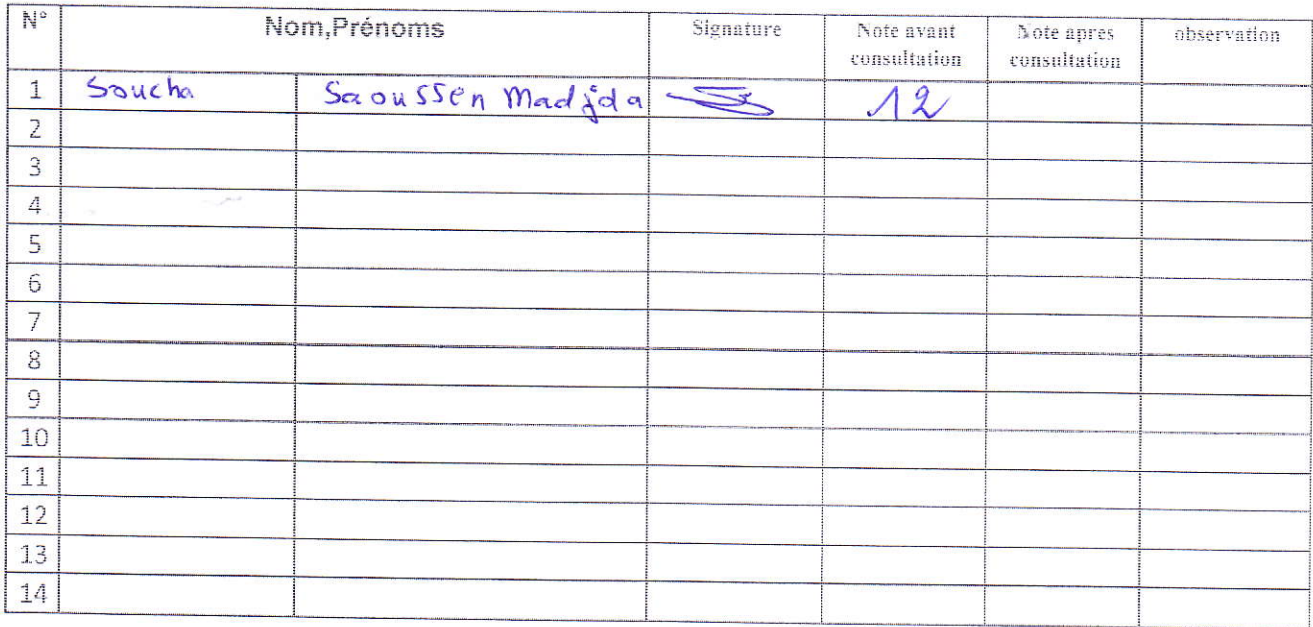 N° Nom,Prénoms Signature Note avant consultation Note apres consultation observation
1 Soucha Saoussen Madjda 12
2
3
4
5
6
7
8
9
10
11
12
13
14